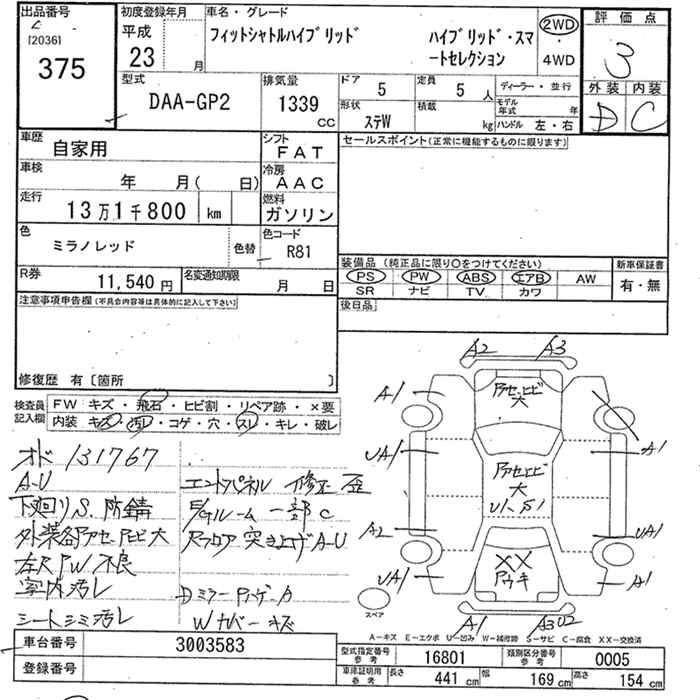 出品番号
[2036]
375
初度登録年月
平成
23 月
車名・グレード
フィットシャトルハイブリッド
ハイブリッド・スマートセレクション
2WD
・
4WD
評価点
3
外装 内装
D C
型式
DAA-GP2
排気量
1339
CC
ドア
5
定員
5 人
ディーラー・並行
形状
ステW
積載
kg
モデル年式 年
ハンドル 左・右
車歴
自家用
シフト
FAT
車検
年 月( 日)
冷房
AAC
走行
13万1千800 km
燃料
ガソリン
色
ミラノレッド
色替
色コード
R81
R券
11,540 円
名変通知期限
月 日
セールスポイント(正常に機能するものに限ります)
装備品(純正品に限り○をつけてください)
PS PW ABS エアB AW
SR ナビ TV カワ
新車保証書
有・無
後日品
注意事項申告欄(不具合内容等は具体的に記入して下さい)
修復歴 有〔箇所 〕
検査員記入欄
FW キズ・飛石・ヒビ割・リペア跡・×要
内装 キズ・汚れ・コゲ・穴・スレ・キレ・破レ
オド 131767
A-U
下廻りS.防錆
外装各アセヒビ大
左R PW不良
室内汚レ
シートシミ汚レ
エンドパネル 修正 歪
E/Gルーム 一部C
Rフロア 突き上げA-U
Dミラー
Wカバーキズ
A2 A3
A1
アセヒビ
大
UA1
A1
アセヒビ
大
U1
S1
A2
UA1
UA1
XX
A1
スペア
A1
A3 U2
A-キズ E-エクボ U-凹み W-補修跡 S-サビ C-腐食 XX-交換済
車台番号
3003583
登録番号
型式指定番号
参考
16801
類別区分番号
参考
0005
車庫証明用
参考
長さ
441 cm
幅
169 cm
高さ
154 cm